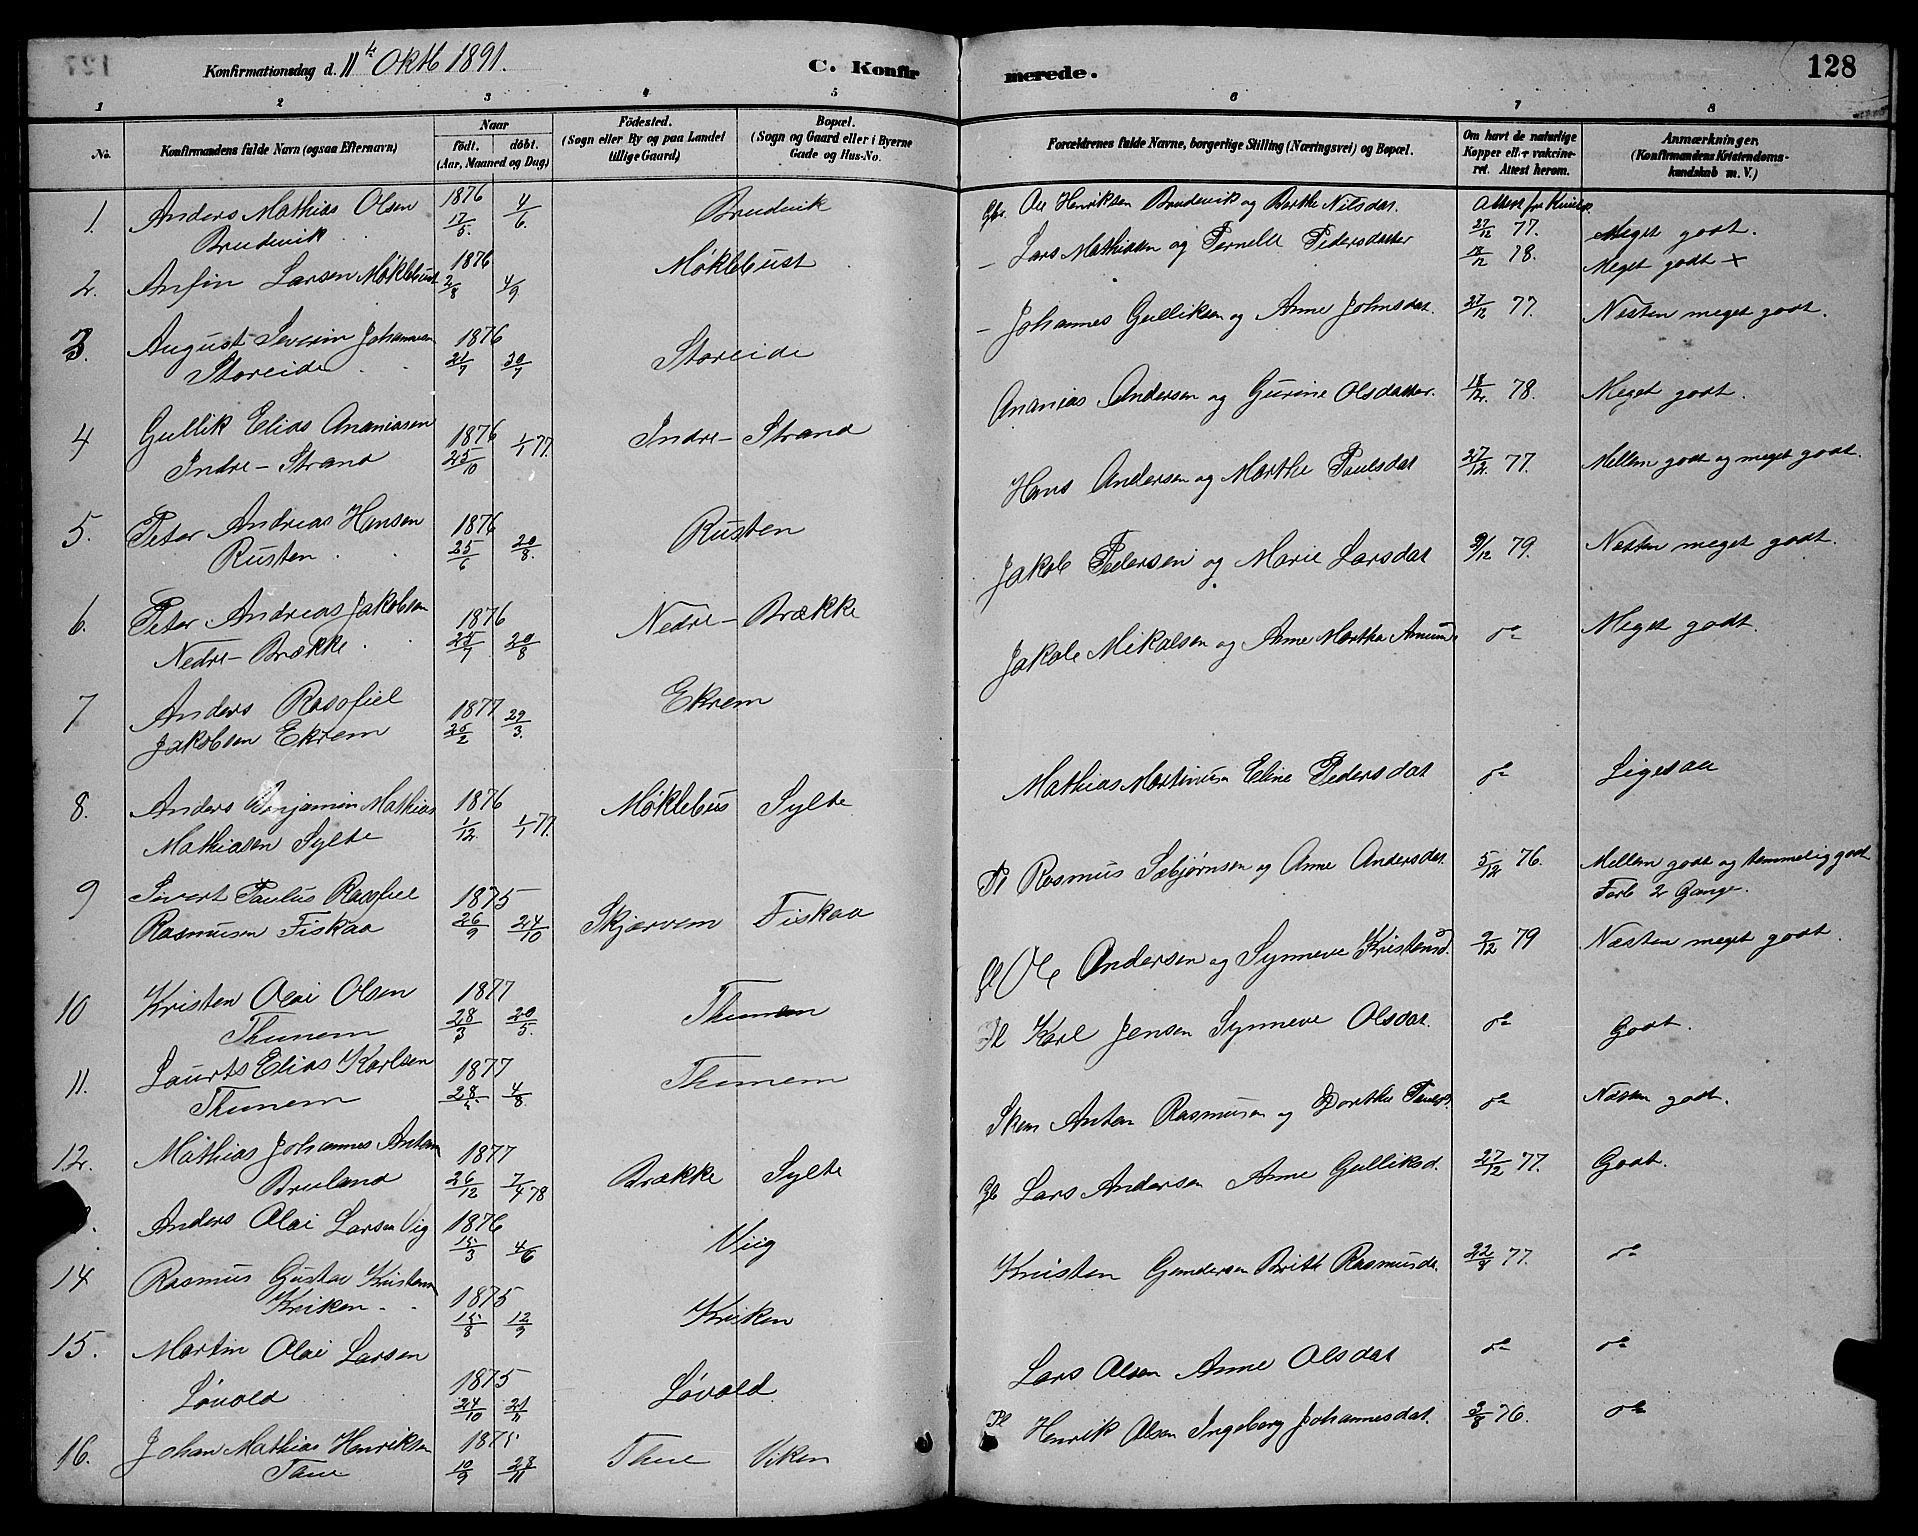 127
Konfirmationsdag d. 11te Oktb 1891.
C. Konfirmerede.
128
1 2 3 4 5 6 7 8
No.
Konfirmandens fulde Navn (ogsaa Efternavn)
Naar
födt. döbt.
(Aar, Maaned og Dag)
Födested.
(Sogn eller By og paa Landet
tillige Gaard)
Bopæl.
(Sogn og Gaard eller i Byerne
Gade og Hus-No.
Forældrenes fulde Navne, borgerlige Stilling (Næringsvei) og Bopæl.
Om havt de naturlige
Kopper eller vakcine-
ret. Attest herom.
Anmærkninger.
(Konfirmandens Kristendoms-
kundskab m. V.)
1. Anders Mathias Olsen 1876 17/5 4/6 Brudevik Gbr. Ole Henriksen Brudevik og Berthe Nilsdat. Attest fra 27/12 77. Meget godt.
Brudevik
2. Anfin Larsen Møklebust 1876 2/8 4/9 Møklebust - Lars Mathiasen og Pernelle Pedersdatter 18/12 78. Meget godt x
3. August Severin Johannesen 1876 21/7 30/7 Storeide - Johannes Gulliksen og Anne Johnsdat. 27/12 77. Næsten meget godt.
Storeide
4 Gullik Elias Ananiasen 1876 25/10 1/1 77. Indre-Strand Ananias Andersen og Gurine Olsdatter. 18/12. 78. Meget godt.
Indre-Strand
5. Peter Andreas Hansen 1876 25/6 20/8. Rusten Hans Andersen og Marthe Paulsdat 27/12. 77. Mellem godt og meget godt.
Rusten
6. Peter Andreas Jakobsen 1876 24/7 20/8 Nedre-Brække Jakob Pedersen og Marie Larsdat 31/12 79. Næsten meget godt.
Nedre-Brække.
7 Anders Rasofiel 1877 25/2 29/3. Ekrem Jakob Mikalsen og Anne Martha do Meget godt.
Jakobsen Ekrem
8. Anders Benjamin Mathias 1876 1/12. 1/1 77. Møklebus Sylte Mathias Martinusen Eline Pedersdat do Ligesaa
Mathiasen Sylte
9 Sivert Paulus Rasofiel 1875 26/9 24/10 Skjærvem Fiskaa Pl Rasmus Sæbjørnsen og Anne Andersdat. 5/12 76. Mellem godt og temmelig godt
Rasmusen Fiskaa Forb 2 Gange.
10 Kristen Olai Olsen 1877 28/3 20/5. Thunem Ole Andersen og Synneve Kristensd. 9/12 79 Næsten meget godt.
Thunem
11. Laurits Elias Karlsen 1877 4/8 Thunem Pl Karl Jensen Synneve Olsdat. do Godt.
Thunem
12. Mathias Johannes Anton 1877 26/12 7/4 78 Brække Sylte Anton Rasmusen og Dorthe do Næsten godt.
Bruland
Anders Olai Larsen Vig 1876 15/3 4/6 Viig Gb Lars Andersen Anne Gulliksd. 27/12 77. Godt.
14 Rasmus Gustav Kristensen 1875 15/8 12/9 Kriken Kristen Gundersen Britt Rasmusd. 22/8 77. do
Kriken
15. Martin Olai Larsen 1875 24/10 21/11 Løvold Lars Olsen Anne Olsdat do do
Løvold
16. Johan Mathias Henriksen 1875 10/9 28/11 Thue Viken Pl Henrik Olsen Ingeborg Johannesdat. 3/8 76. do
Tue